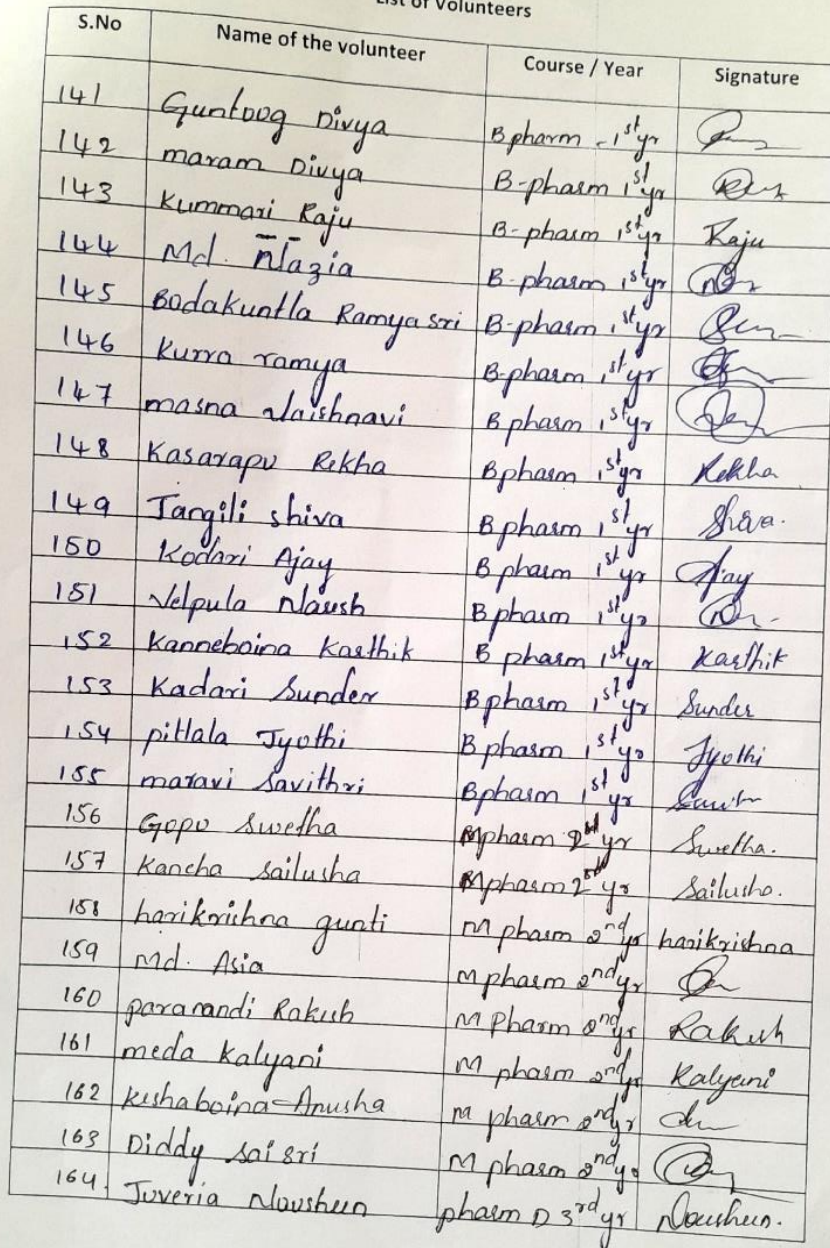 List of Volunteers
S.No Name of the volunteer Course / Year Signature
141 Guntoog Divya B pharm - 1st yr
142 maram Divya B-pharm 1st yr
143 Kummari Raju B-pharm 1st yr Raju
144 Md. Nazia B-pharm 1st yr
145 Bodakuntla Ramya sri B-pharm 1st yr
146 Kurra ramya B-pharm 1st yr
147 masna Vaishnavi B pharm 1st yr
148 Kasarapu Rekha B pharm 1st yr Rekha
149 Jangili shiva B pharm 1st yr Shiva.
150 Kodari Ajay B pharm 1st yr Ajay
151 Velpula B pharm 1st yr
152 Kanneboina Karthik B pharm 1st yr Karthik
153 Kadari Sunder B pharm 1st yr Sunder
154 pittala Jyothi B pharm 1st yr Jyothi
155 maravi Savithri B pharm 1st yr
156 Gopu Swetha M pharm 2nd yr Swetha.
157 Kancha Sailusha M pharm 2nd yr Sailusha.
158 harikrishna gunti M pharm 2nd yr harikrishna
159 Md. Asia M pharm 2nd yr
160 paranandi Rakesh M Pharm 2nd yr Rakesh
161 meda Kalyani M pharm 2nd yr Kalyani
162 Keshaboina Anusha M pharm 2nd yr
163 Diddy sai sri M pharm 2nd yr
164. Juveria Nousheen pharm D 3rd yr Nousheen.